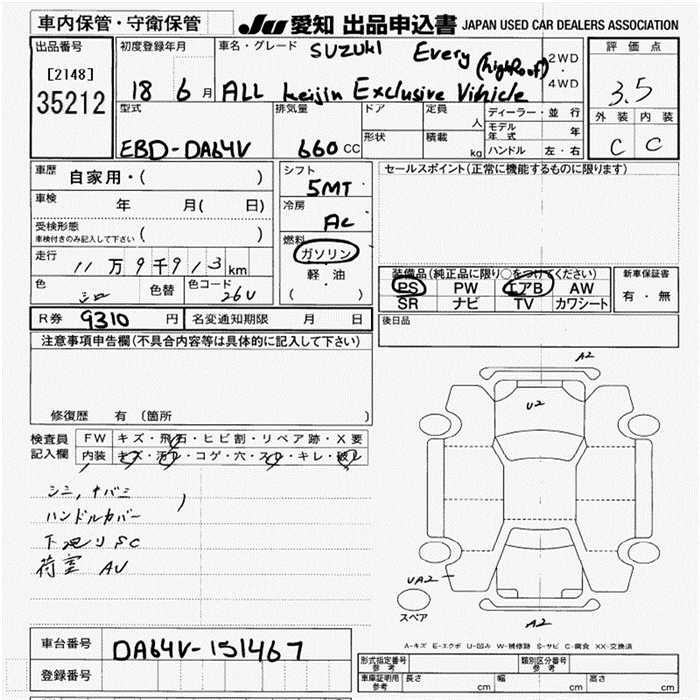 車内保管・守衛保管
JU 愛知 出品申込書 JAPAN USED CAR DEALERS ASSOCIATION
出品番号 初度登録年月 車名・グレード SUZUKI Every (highRoof) 2WD ・ 4WD 評価点
[2148] 35212 18 6 月 ALL keijin Exclusive Vihicle 3.5
型式 排気量 ドア 定員 人 ディーラー・並行 外装 内装
EBD-DA64V 660 CC 形状 積載 kg モデル年式 年 C C
ハンドル 左・右
車歴 自家用・( ) シフト 5MT セールスポイント(正常に機能するものに限ります)
車検 年 月( 日) 冷房 AC
受検形態 ( )
車検付きのみ記入して下さい
燃料 ガソリン
走行 11万9千913km 軽油
( ・ )
装備品(純正品に限り○をつけてください) 新車保証書
PS PW エアB AW 有・無
色 シロ 色替 色コード 26U SR ナビ TV カワシート
R券 9310 円 名変通知期限 月 日 後日品
注意事項申告欄(不具合内容等は具体的に記入して下さい)
A2
U2
修復歴 有 (箇所 )
検査員 FW キズ・飛石・ヒビ割・リペア跡・X要
記入欄 内装 キズ・汚レ・コゲ・穴・スレ・キレ・破レ
シミ,
ハンドルカバー
下廻りSC
荷室 AU
UA2
スペア
A2
A-キズ E-エクボ U-凹み W-補修跡 S-サビ C-腐食 XX-交換済
車台番号 DA64V-151467
登録番号
形式指定番号 参考 類別区分番号 参考
車庫証明用 参考 長さ cm 幅 cm 高さ cm